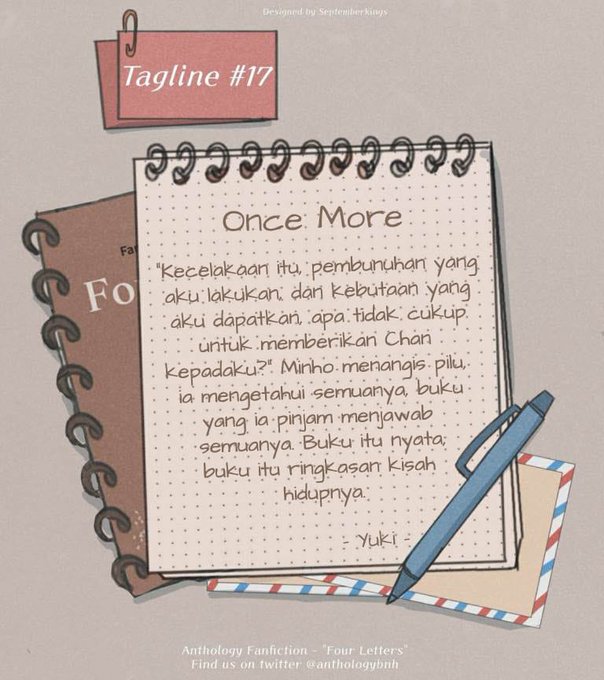 Designed by Septemberkings
Tagline #17
Once More
"Kecelakaan itu, pembunuhan yang
aku lakukan, dan kebutaan yang
aku dapatkan, apa tidak cukup
untuk memberikan Chan
kepadaku?" Minho menangis pilu,
ia mengetahui semuanya, buku
yang ia pinjam menjawab
semuanya. Buku itu nyata,
buku itu ringkasan kisah
hidupnya.
- Yuki -
Fa
Fo
Anthology Fanfiction - "Four Letters"
Find us on twitter @anthologybnh